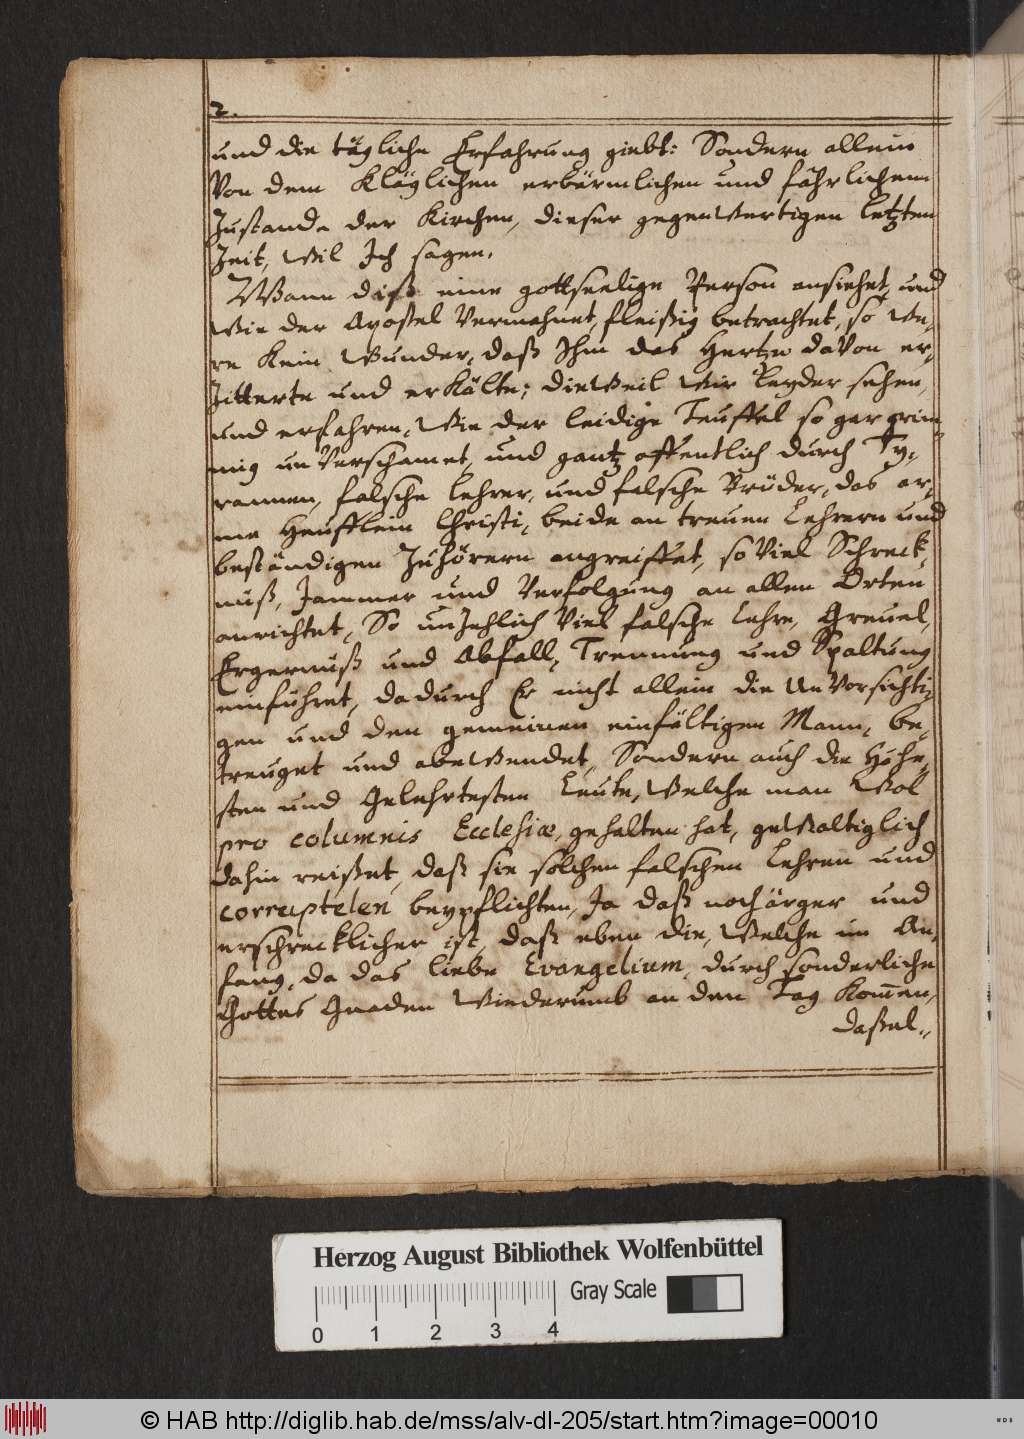 2.
und die tägliche Erfahrung giebt: Sondern allein
Von dem Kläglichen erbärmlichen und fährlichem
Zustande der Kirchen, dieser gegenWertigen letzten
Zeit, Wil Ich sagen.
Wann diß eine gottseelige Person ansiehet, und
Wie der Apostel Vermahnet, fleißig betrachtet, so We-
re Kein Wunder, daß Ihm das Hertze daVon er-
Zitterte und erKälte; dieWeil Wir leyder sehen,
und erfahren, Wie der leidige Teuffel so gar grim-
mig unVerschamet, und gantz offentlich durch Ty-
rannen, falsche Lehrer, und falsche Brüder, das ar-
me Heufflein Christi, beide an treuen Lehrern und
beständigen Zuhörern angreiffet, soViel Schreck-
nuß, Jammer und Verfolgung an allen Orten
anrichtet, So unZehlich Viel falsche Lehre, Greuel,
Ergernuß und Abfall, Trennung und Spaltung
einfuhret, dadurch Er nicht allein die UnVorsichti-
gen und den gemeinen einfältigen Mann, be-
treuget und abeWendet, Sondern auch die Höhe-
sten und Gelehrtesten Leute, Welche man Wol
pro columnis Ecclesiæ, gehalten hat, geWaltiglich
dahin reißet, daß sie solchen falschen Lehren und
corruptelen beypflichten, Ja daß noch ärger und
erschrecklicher ist, daß eben die, Welche im An-
fang, da das liebe Evangelium, durch sonderliche
Gottes Gnaden Wiederumb an den Tag Kom̄en,
daßel-
Herzog August Bibliothek Wolfenbüttel
Gray Scale
0 1 2 3 4
© HAB http://diglib.hab.de/mss/alv-dl-205/start.htm?image=00010